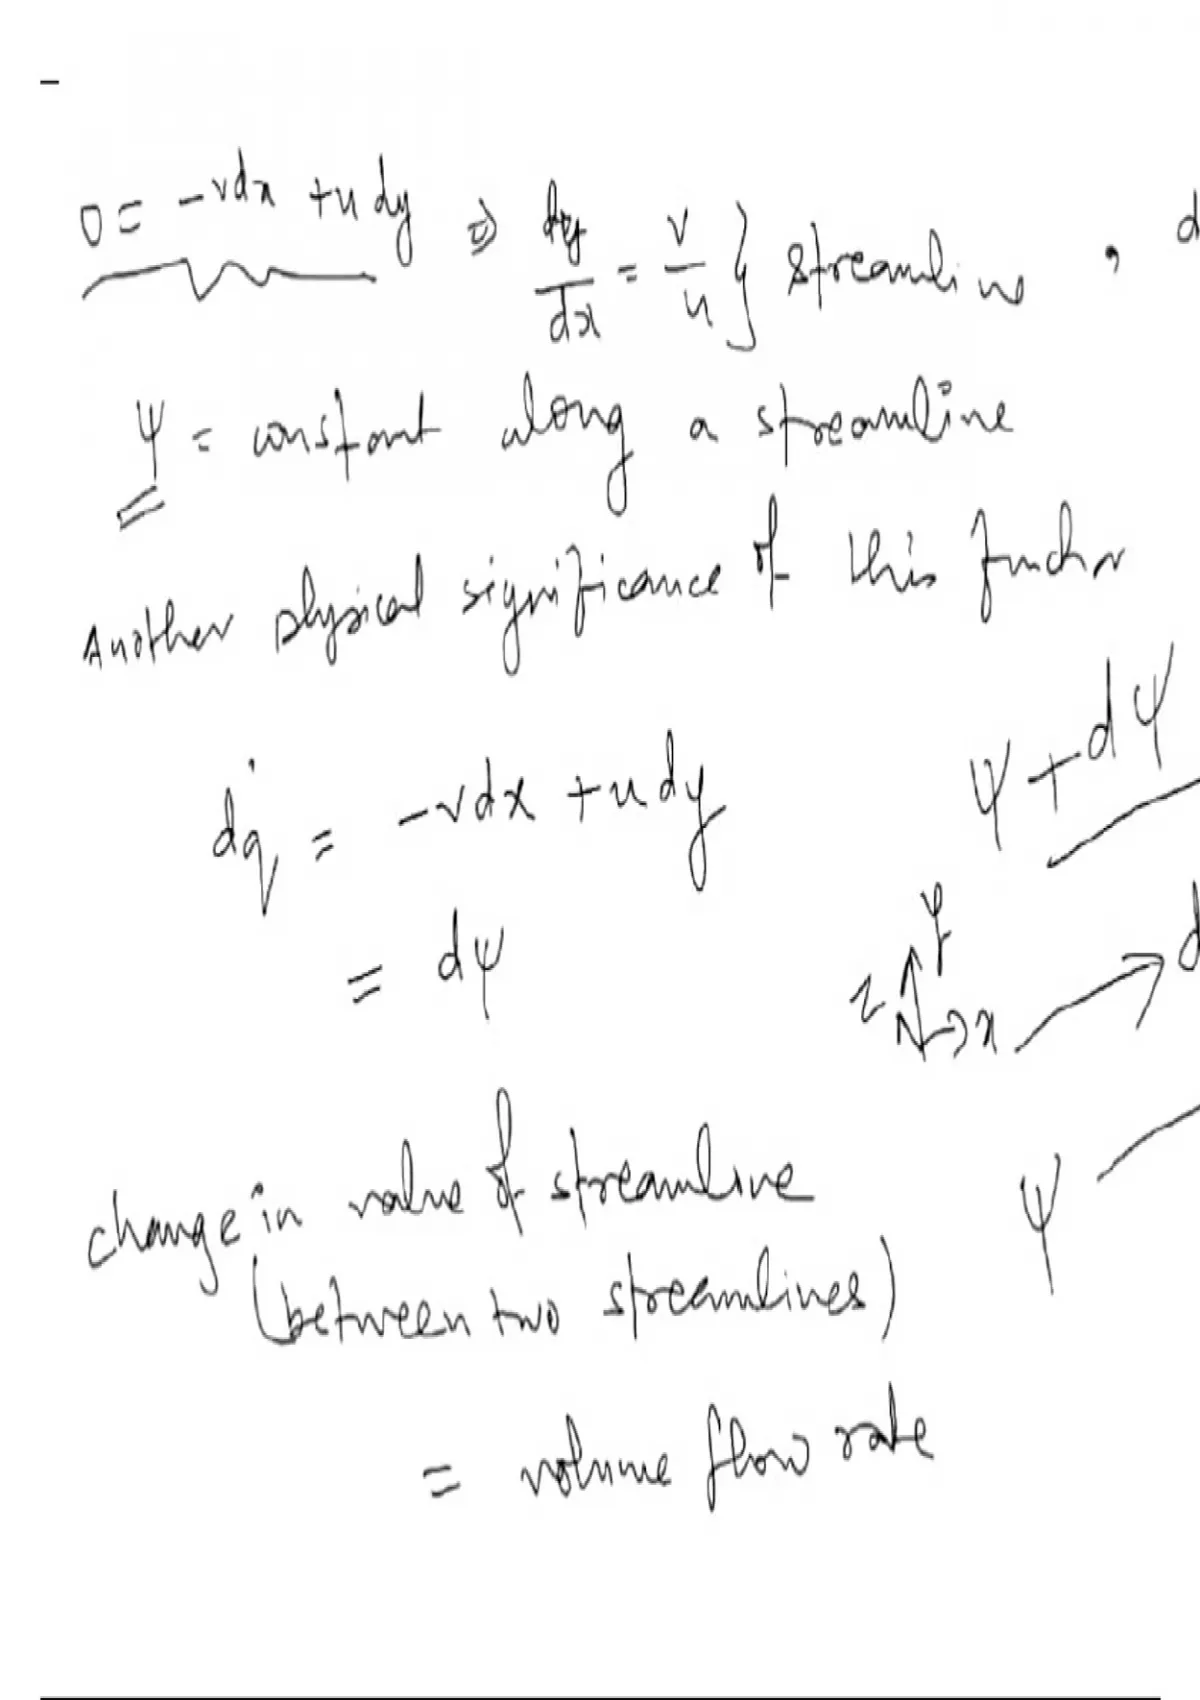 0 = -vdx + u dy ⇒ dy/dx = v/u } streamline , d
ψ = constant along a streamline
Another physical significance of this function
ψ + dψ
dq̇ = -vdx + u dy
= dψ
y
z x d
change in value of streamline
ψ
(between two streamlines)
= volume flow rate